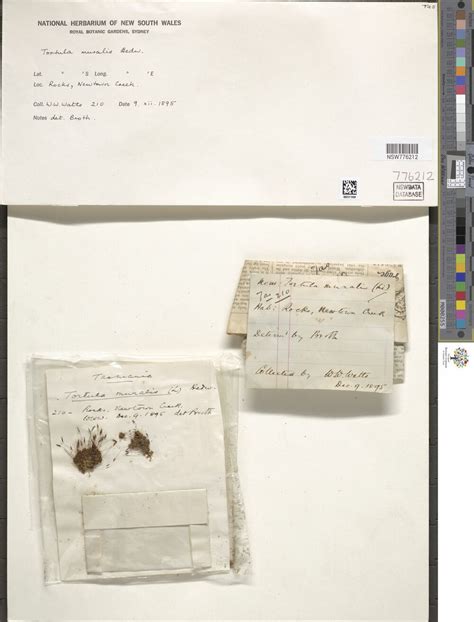 NATIONAL HERBARIUM OF NEW SOUTH WALES
ROYAL BOTANIC GARDENS, SYDNEY
Tortula muralis Hedw.
Lat. ° 'S Long. ° 'E
Loc. Rocks, Newtown Creek.
Coll. W.W. Watts 210 Date 9. xii. 1895
Notes det. Broth.
NSW776212
776212
NSW DATA
DATABASE
Nom: Tortula muralis (L.)
210
Hab: Rocks, Newtown Creek
Determd by Broth
Collected by W.W. Watts
Dec. 9. 1895
Tasmania
Tortula muralis (L) Hedw.
210 - Rocks, Newtown Creek
W.W.W. Dec. 9. 1895 det Broth